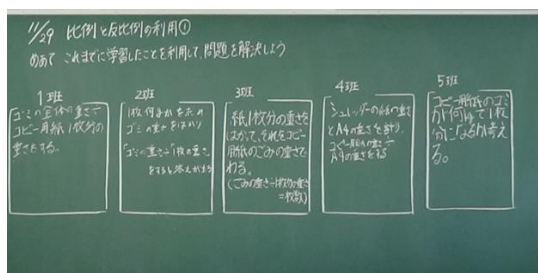 11/29 比例と反比例の利用①
めあて これまでに学習したことを利用して問題を解決しよう
1班
ゴミの全体の重さ÷
コピー用紙1枚分の
重さをする。
2班
1枚何gかをた
ゴミの重さをはかり
「ゴミの重さ÷1枚の重さ」
をすると答えが出る
3班
紙1枚分の重さを
はかって、それをコピー
用紙のごみの重さで
わる。
(ごみの重さ÷1枚分の重さ
=枚数)
4班
シュレッダーの紙の重さ
とA4の重さを計り、
コピー用紙の重さ÷
A4の重さをする
5班
コピー用紙のゴミ
が何gで1枚
分になるか考え
る。